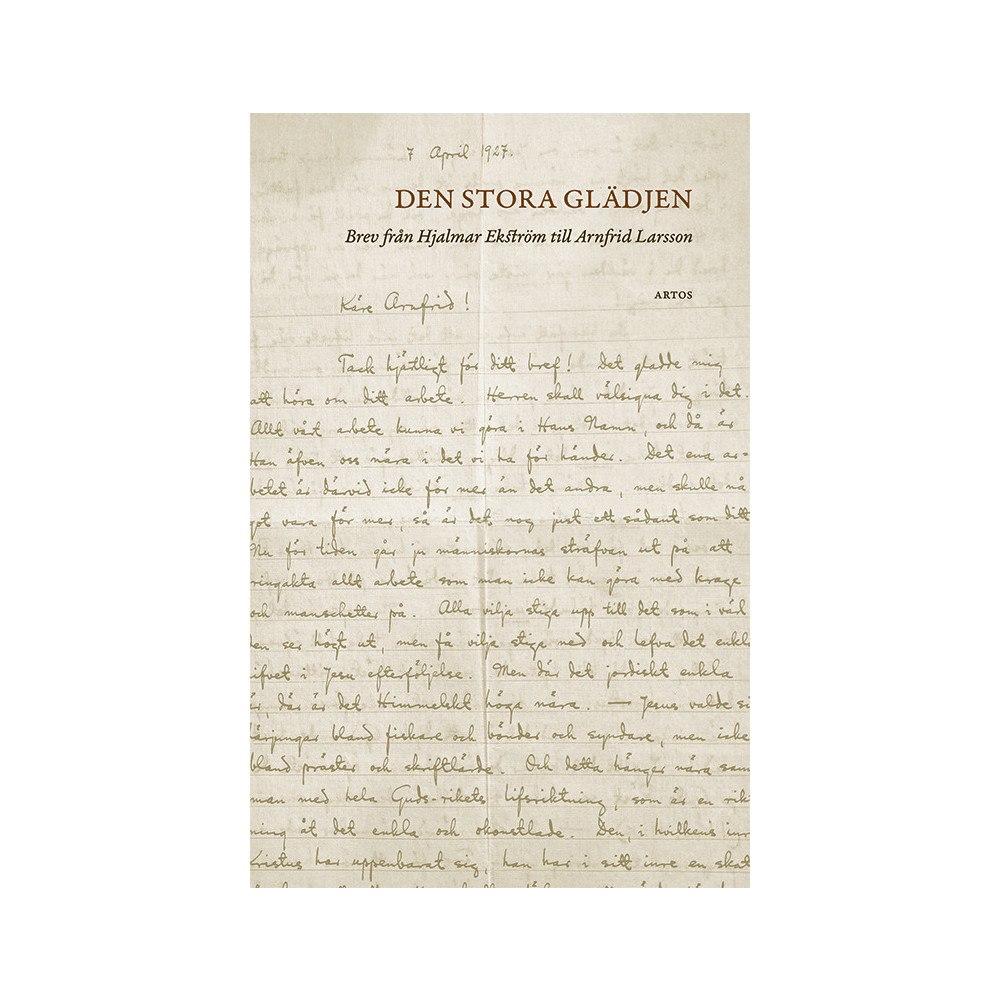 7 April 1927.
DEN STORA GLÄDJEN
Brev från Hjalmar Ekström till Arnfrid Larsson
ARTOS
Käre Arnfrid!
Tack hjätligt för ditt bref! Det gladde mig
att höra om ditt arbete. Herren skall välsigna dig i det.
Allt vårt arbete kunna vi göra i Hans Namn, och då är
Han äfven oss nära i det vi ha för händer. Det ena ar-
betet är därvid icke för mer än det andra, men skulle nå
got vara för mer, så är det nog just ett sådant som ditt
Nu för tiden går ju människornas sträfvan ut på att
ringakta allt arbete som man icke kan göra med krage
och manschetter på. Alla vilja stiga upp till det som i värl
en ser högt ut, men få vilja stiga ned och lefva det enkla
ifvet i Jesu efterföljelse. Men där det jordiskt enkla
är, där är det Himmelskt höga nära. — Jesus valde si
lärjungar bland fiskare och bönder och syndare, men icke
bland präster och skriftlärde. Och detta hänger nära sam
man med hela Guds-rikets lifsriktning, som är en rikt
ning åt det enkla och okonstlade. Den, i hvilkens inre
Kristus har uppenbarat sig, han har i sitt inre en skat